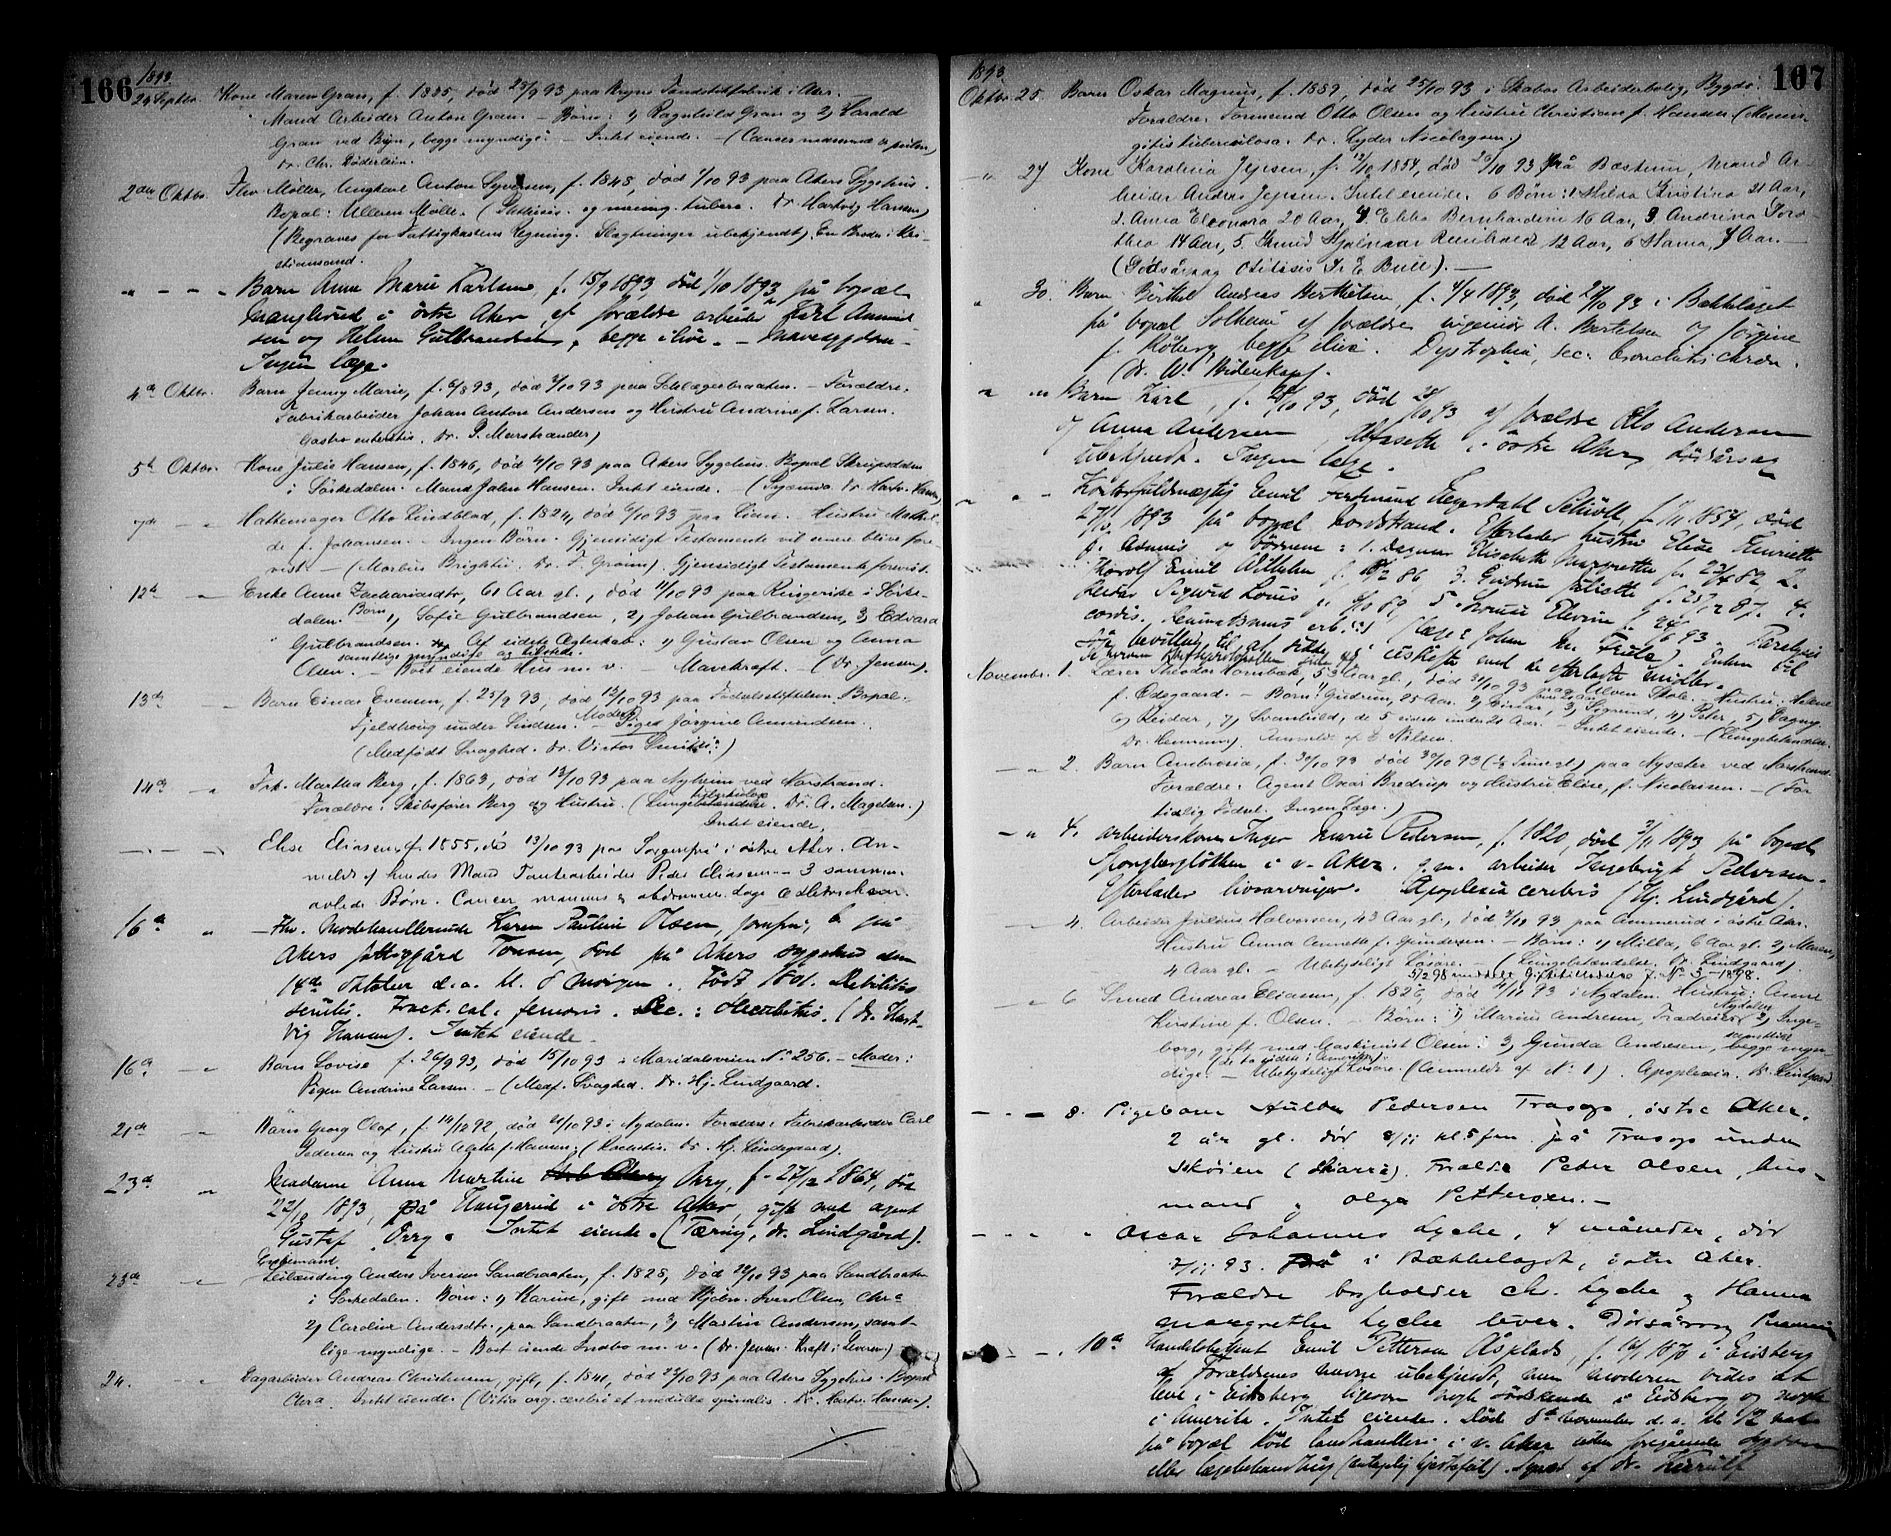 166
1893
29 Septbr. Kone Maren Gran, f. 1835, død 25/9 93 paa Bryns Tændstikfabrik i Aker. –
Mand Arbeider Anton Gran. – Børn: 1) Ragnhild Gran og 2) Harald
Gran ved Bryn, begge myndige. – Intet eiende. – (Cancer mammæ
Dr. Chr. Döderlein.
2den Oktbr. Fhv. Møller, Ungkarl Anton Syversen, f. 1848, død 1/10 93 paa Akers Sygehus.
Bopæl: Ullern Mølle. (Phthisis. og mening. tuberc. Dr. Hartvig Hansen)
(Begraves for Fattigkassens Regning. Slægtninger ubekjendt). En Broder i Kri-
stiansand.
" – – – Barn Anna Marie Karlsen, f. 15/9 1893, død 1/10 1893, på bopæl
Manglerud i østre Aker, af forældre arbeider Karl
sen og Helene Gulbrandsen, begge ilive. –
Ingen læge.
4de Oktbr. Barn Jenny Marie, f. 6/8 93, død 2/10 93 paa Schlægerbraaten. – Forældre:
Fabrikarbeider Johan Anton Andersen og Hustru Andrine f. Larsen.
Gastro enteritis. Dr. P. Marstrander)
5te Oktbr. Kone Julie Hansen, f. 1846, død 4/10 93 paa Akers Sygehus. Bopæl
i Sørkedalen. Mand Johan Hansen. Intet eiende. – (Pyæmia Dr. Hartv. Hansen)
7de – " Hattemager Otto Lindblad, f. 1824, død 6/10 93 paa Lian. Hustru Mathil-
de f. Johansen. – Ingen Børn. Gjensidigt Testamente vil senere blive fore-
vist. – (Morbus Brightii. Dr. F. Grønn) Gjensidigt Testamente forevist.
12te – " Enke Anne Zachariasdtr, 61 Aar gl., død 11/10 93 paa Ringerike i Sørke-
dalen. Børn 1) Sofie Gulbrandsen, 2) Johan Gulbrandsen, 3) Edvard
Gulbrandsen. Af sidste Ægteskab: 1) Gustav Olsen og Anna
samtlige myndige og tilstede.
Olsen. – Boet eiende Hus m. v. Mavekræft. – (Dr. Jensen).
13de – " Barn Einar Evensen, f. 25/9 93, død 13/10 93 paa Fødselsstiftelsen. Bopæl.
Fjeldhoug under Linderu. Moder: Pigen Jørgine Amundsen.
(Medfødt Svaghed. Dr. Victor
14de – " Frk. Martha Berg, f. 1863, død 13/10 93 paa Nyheim ved Norstrand.
Forældre: Skibsfører Berg og Hustru. (Lungetuberkulose. Dr. A. Magelsen.)
Intet eiende.
Elise Eliassen, f. 1855, død 13/10 93 paa Sorgenfri i østre Aker. An-
meldt af hendes Mand Tomtearbeider Peder Eliassen – 3 sammen-
avlede Børn. Cancer mammæ
16de " – Fhv. Modehandlerinde Karen Pauline Olsen, Jomfru, b. på
Akers fattiggård Tonsen, død på Akers sygehus den
14de Oktober d.a. kl. 8 morgen. Født 1801. Debilitas
senilis. Fract. col. femoris. Sec.: Decubitus. (Dr. Hart-
vig Hansen). Intet eiende. –
16de – " Barn Lovise f. 26/9 93, død 15/10 93 i Maridalsveien No 256. – Moder:
Pigen Andrine Larsen. – (Medf. Svaghed. Dr. Hj. Lindgaard.
21de – " Barn Georg Olaf, f. 14/12 92, død 21/10 93 i Nydalen. Forældre: Fabrikarbeider Carl
Pedersen og Hustru Agathe f. Hansen. (Rachitis. Dr. Hj. Lindgaard).
23de " Madame Anna Martine Orry, f. 27/12 1864, død
22/10 1893, på Haugerud i østre Aker, gift med agent
Gustaf Orry. Intet eiende. (Tæring, Dr. Lindgård).
Enkemand
23de – " Leilænding Anders Iversen Sandbraaten, f. 1828, død 22/10 93 paa Sandbraaten
i Sørkedalen. Børn: 1) Karine, gift med Iver Olsen, Chra
2) Caroline Andersdtr., paa Sandbraaten, 3) Martin Andersen, samt-
lige myndige. – Boet eiende Indbo m. v. (Dr. Jensen. Kræft i Leveren)
24. – " Dagarbeider Andreas Christensen, gift, f. 1841, død 23/10 93 paa Akers Sygehus. Bopæl
Chra. Intet eiende. (Vitia org. cerebri et medulla spinalis. Dr. Hartv. Hansen).
167
1893
Oktbr. 25. Barn Oskar Magnus, f. 1889, død 25/10 93 i Skabos Arbeiderbolig, Bygdø.
Forældre: Formand Otto Olsen og Hustru Christiane f. Hansen. (Menin-
gitis tuberculosa. Dr. Lyder Nicolaysen.)
– " 27 Kone Karolina Jepsen, f. 12/10 1854, død 26/10 93 frå Bæstum, Mand Ar-
beider Andreas Jepsen. Intet eiende. 6 Børn: 1 Hilda Kristina 21 Aar,
2. Anna Eleonora 20 Aar, 4 Ebba Bernhardine 16 Aar, 3 Andrina Doro-
thea 14 Aar, 5. Knud Hjalmar Reinhold 12 Aar, 6 Hanna, 7 Aar. –
(Dødsårsag Dr E Bull). –
" 30. Barn Berthel Andreas Berthelsen, f. 4/4 1893, død 28/10 93 i Bækkelaget
på bopæl Solheim af forældre ingeniør A. Bertelsen og Jørgine
f. Moberg, begge ilive. Dystrophia, sec. Bronchitis chron.
(Dr. W. Bidenkap).
" " Barn Karl, f. 28/10 93, død 28/10 93 af forældre Ole Andersen
og Anna Andersen, Abfaseth i østre Aker, dødsårsag
ubekjendt. Ingen læge.
" " – Kontorfuldmægtig Emil Ferdinand Fagerdahl Schiøll, f. 1/11 1854, død
27/10 1893 på bopæl Nordstrand. Efterlader hustru Elise Henriette
f. Asmis og børnene: 1. Dagmar Elisabeth Margrethe f. 23/4 82, 2.
Harolf Emil Wilhelm f. 86, 3. Gudrun f. 87, 4.
Reidar Sigurd Louis f. 89, 5. Louise Elvine f. 24/6 93. Paralysis
cordis. (læge: Johan Fr. Friele). Enken har
får bevilling til at sidde i uskiftet bo med de efterladte umyndige.
Novembr. 1. Lærer Theodor Hornbæk, 53 Aar gl., død 31/10 93 paa Ullern Skole. Hustru: Helene
f. Ødegaard. – Børn: 1) Gudrun, 25 Aar, 2) Einar, 3) Sigmund, 4) Peter, 5) Dagny,
6) Reidar, 7) Svanhild, de 5 sidste under 21 Aar. – Intet eiende. – (Lungebetændelse.
Dr. Hemming). Anmeldt af E Nilsen.
– " 2. Barn Ambrosia, f. 30/10 93 død 30/10 93 (1/2 Time gl) paa Nysæter ved Norstrand.
Forældre: Agent Oscar Bredrup og Hustru Elise, f. Nicolaisen. – (For
tidlig Fødsel. Ingen Læge.)
– " 4. Arbeiderskone Inger Marie Pedersen, f. 1820, død 2/11 1893 på bopæl
Spongbergløkken i v. Aker. g. m. arbeider Ingebrigt Pedersen.
Efterlader livsarvinger. Apoplexia cerebris (Hj. Lindgård).
– 4. Arbeider Julius Halvorsen, 43 Aar gl., død 2/11 93 paa Ammerud i østre Aker.
Hustru Anna Annette f. Gundersen. – Børn: 1) Milla, 6 Aar gl. 2) Maren,
4 Aar gl. – Ubetydeligt Løsøre. – (Lungebetændelse. Dr. Lindgaard).
5/2 98 meddelt Giftetilladelse J. No 3 – 1898.
– " 6 Smed Andreas Eliassen, f. 1826, død 4/11 93 i Nydalen. Hustru: Anne
Kirstine f. Olsen. – Børn: 1) Marius Andresen, Traadreier Nydalen 2) Inge-
borg, gift med Maskinist Olsen; 3) Gunda Andresen, samtlige myn-
(de to sidste i Amerika)
dige. – Ubetydeligt Løsøre. (Anmeldt af No 1). Apoplexia. Dr. Lindgaard
– " – 8. Pigebarn Hulda Pedersen Trasop, østre Aker.
2 år gl. død 8/11 kl 5 fm. på Trasop under
Skøien (Diarré). Forældre Peter Olsen, hus-
mand og Olga Pettersen. –
– " – " Oscar Johannes Lyche, 4 måneder, død
7/11 93. i Bækkelaget, østre Aker.
Forældre bogholder Chr. Lyche og Hanna
Margrethe Lyche lever. Dødsårsag
– " – 10de Handelsbetjent Emil Petterson Åsplads, f. 1870 i Eidsberg
af Forældrenes navne ubekjendt, kun moderen vides at
leve i Eidsberg ligesom nogle søskende i Eidsberg og nogle
i Amerika. Intet eiende. Død 8de November d. a. kl 12 nat
på bopæl hos landhandler i v. Aker uden foregående sygdom
eller lægebehandling (antagelig hjertefeil). Synet af Dr. Kierulf